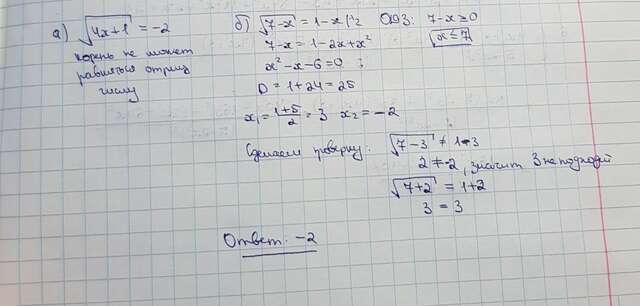 а) √4x+1 = -2
корень не может
равняться отриц
числу
б) √7-x = 1-x |^2 ОДЗ: 7-x ≥ 0
x ≤ 7
7-x = 1-2x+x²
x²-x-6=0;
D = 1+24=25
x₁ = 1+5/2 = 3 x₂ = -2
Сделаем проверку: √7-3 ≠ 1-3
2 ≠ -2, значит 3 не подходит
√7+2 = 1+2
3 = 3
Ответ: -2